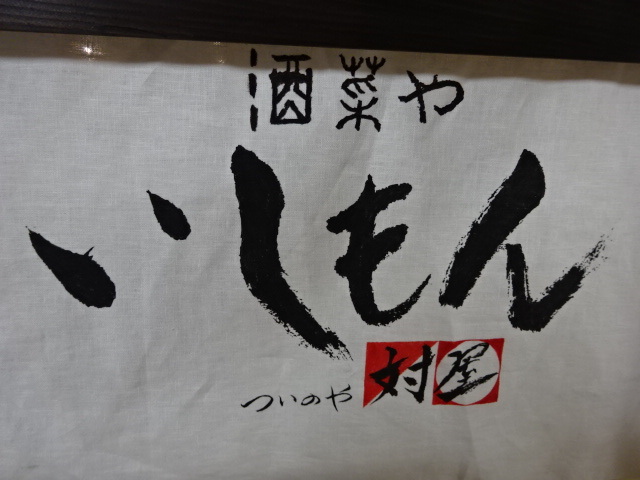 酒菜や
いしもん
ついのや 対屋